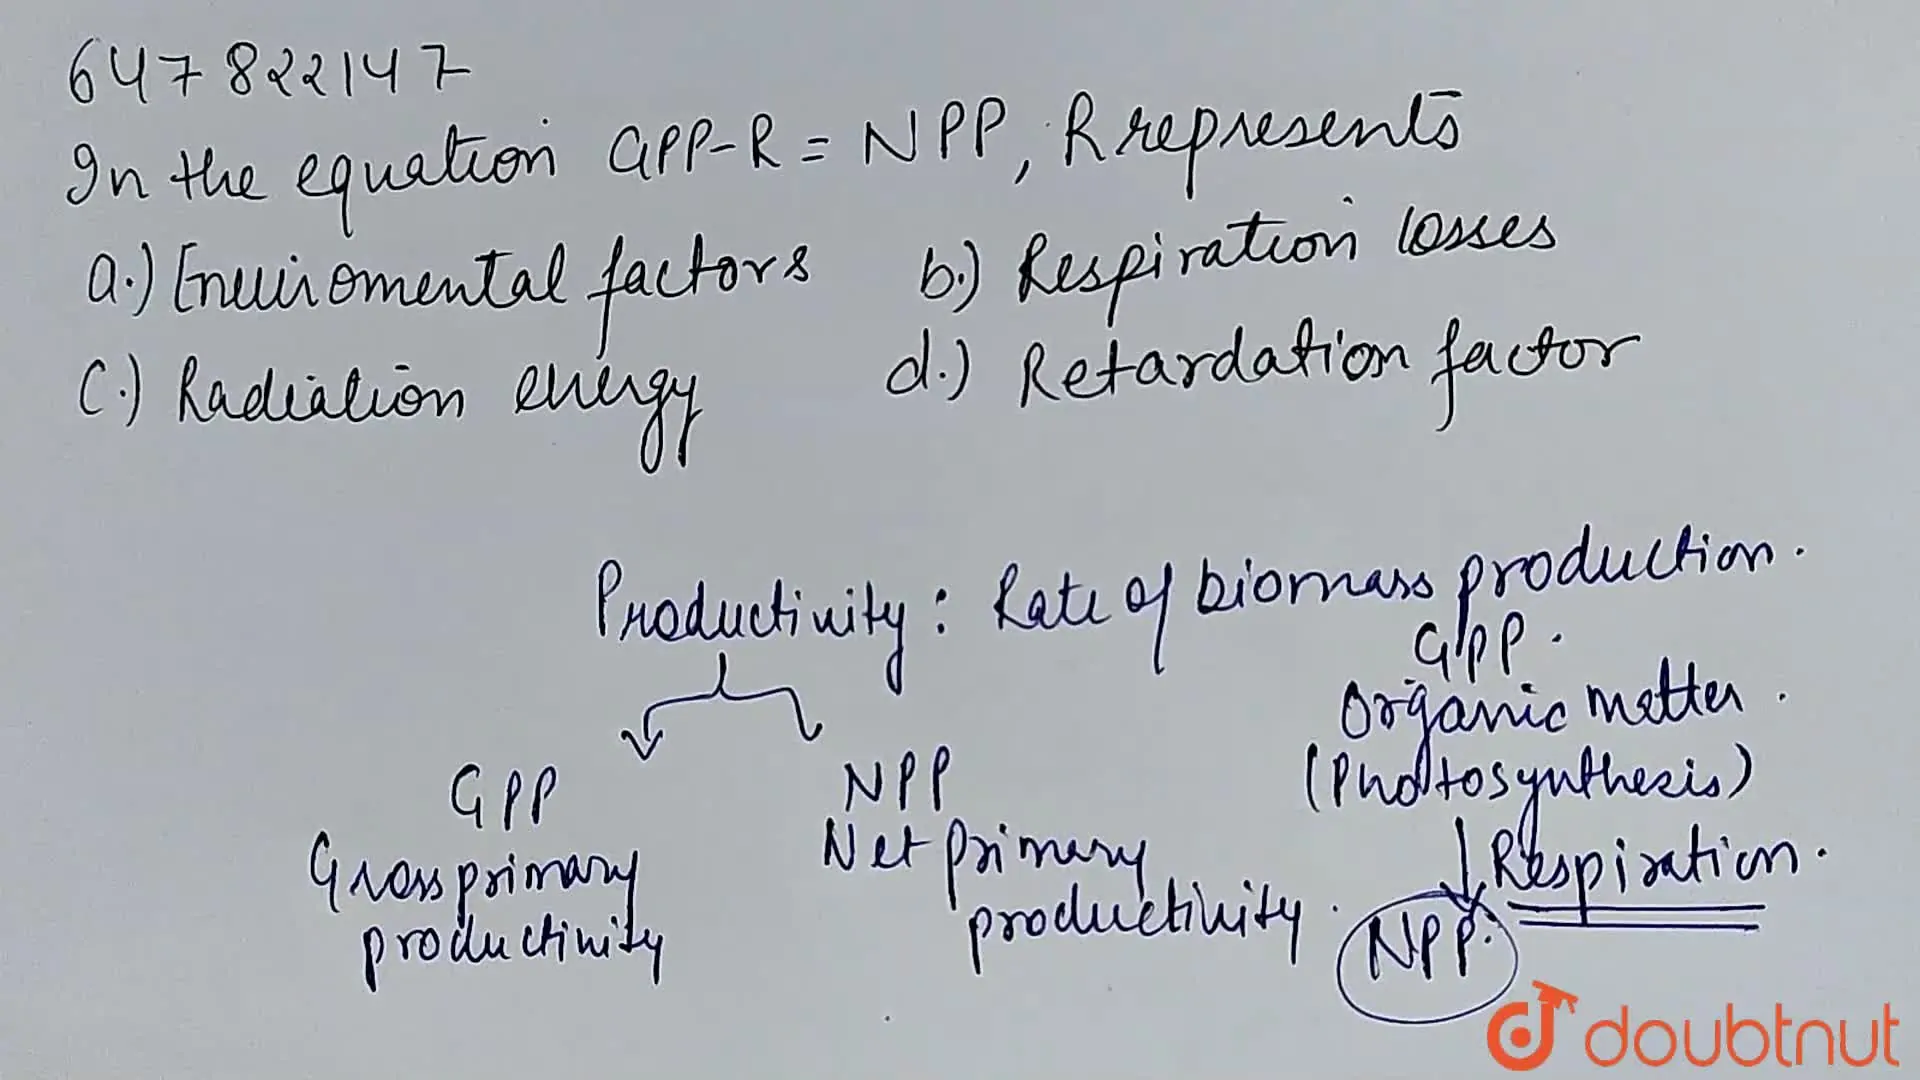 647822147
In the equation GPP-R = NPP, R represents
a.) Enviromental factors b.) Respiration losses
c.) Radiation energy d.) Retardation factor
Productivity: Rate of biomass production.
GPP.
Organic matter.
(Photosynthesis)
Respiration.
NPP.
GPP
Gross primary
productivity
NPP
Net primary
productivity.
doubtnut